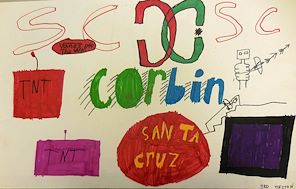 SC
SC
TNT
corbin
TNT
SANTA
cruz